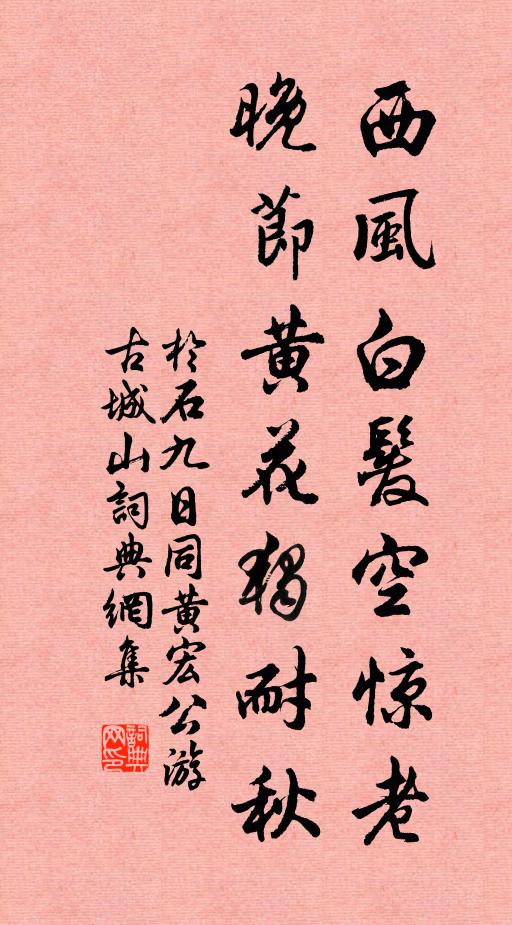 西風白髮空惊老
晚節黄花獨耐秋
於石九日同黄宏公游
古城山詞典網集
詞典
网印